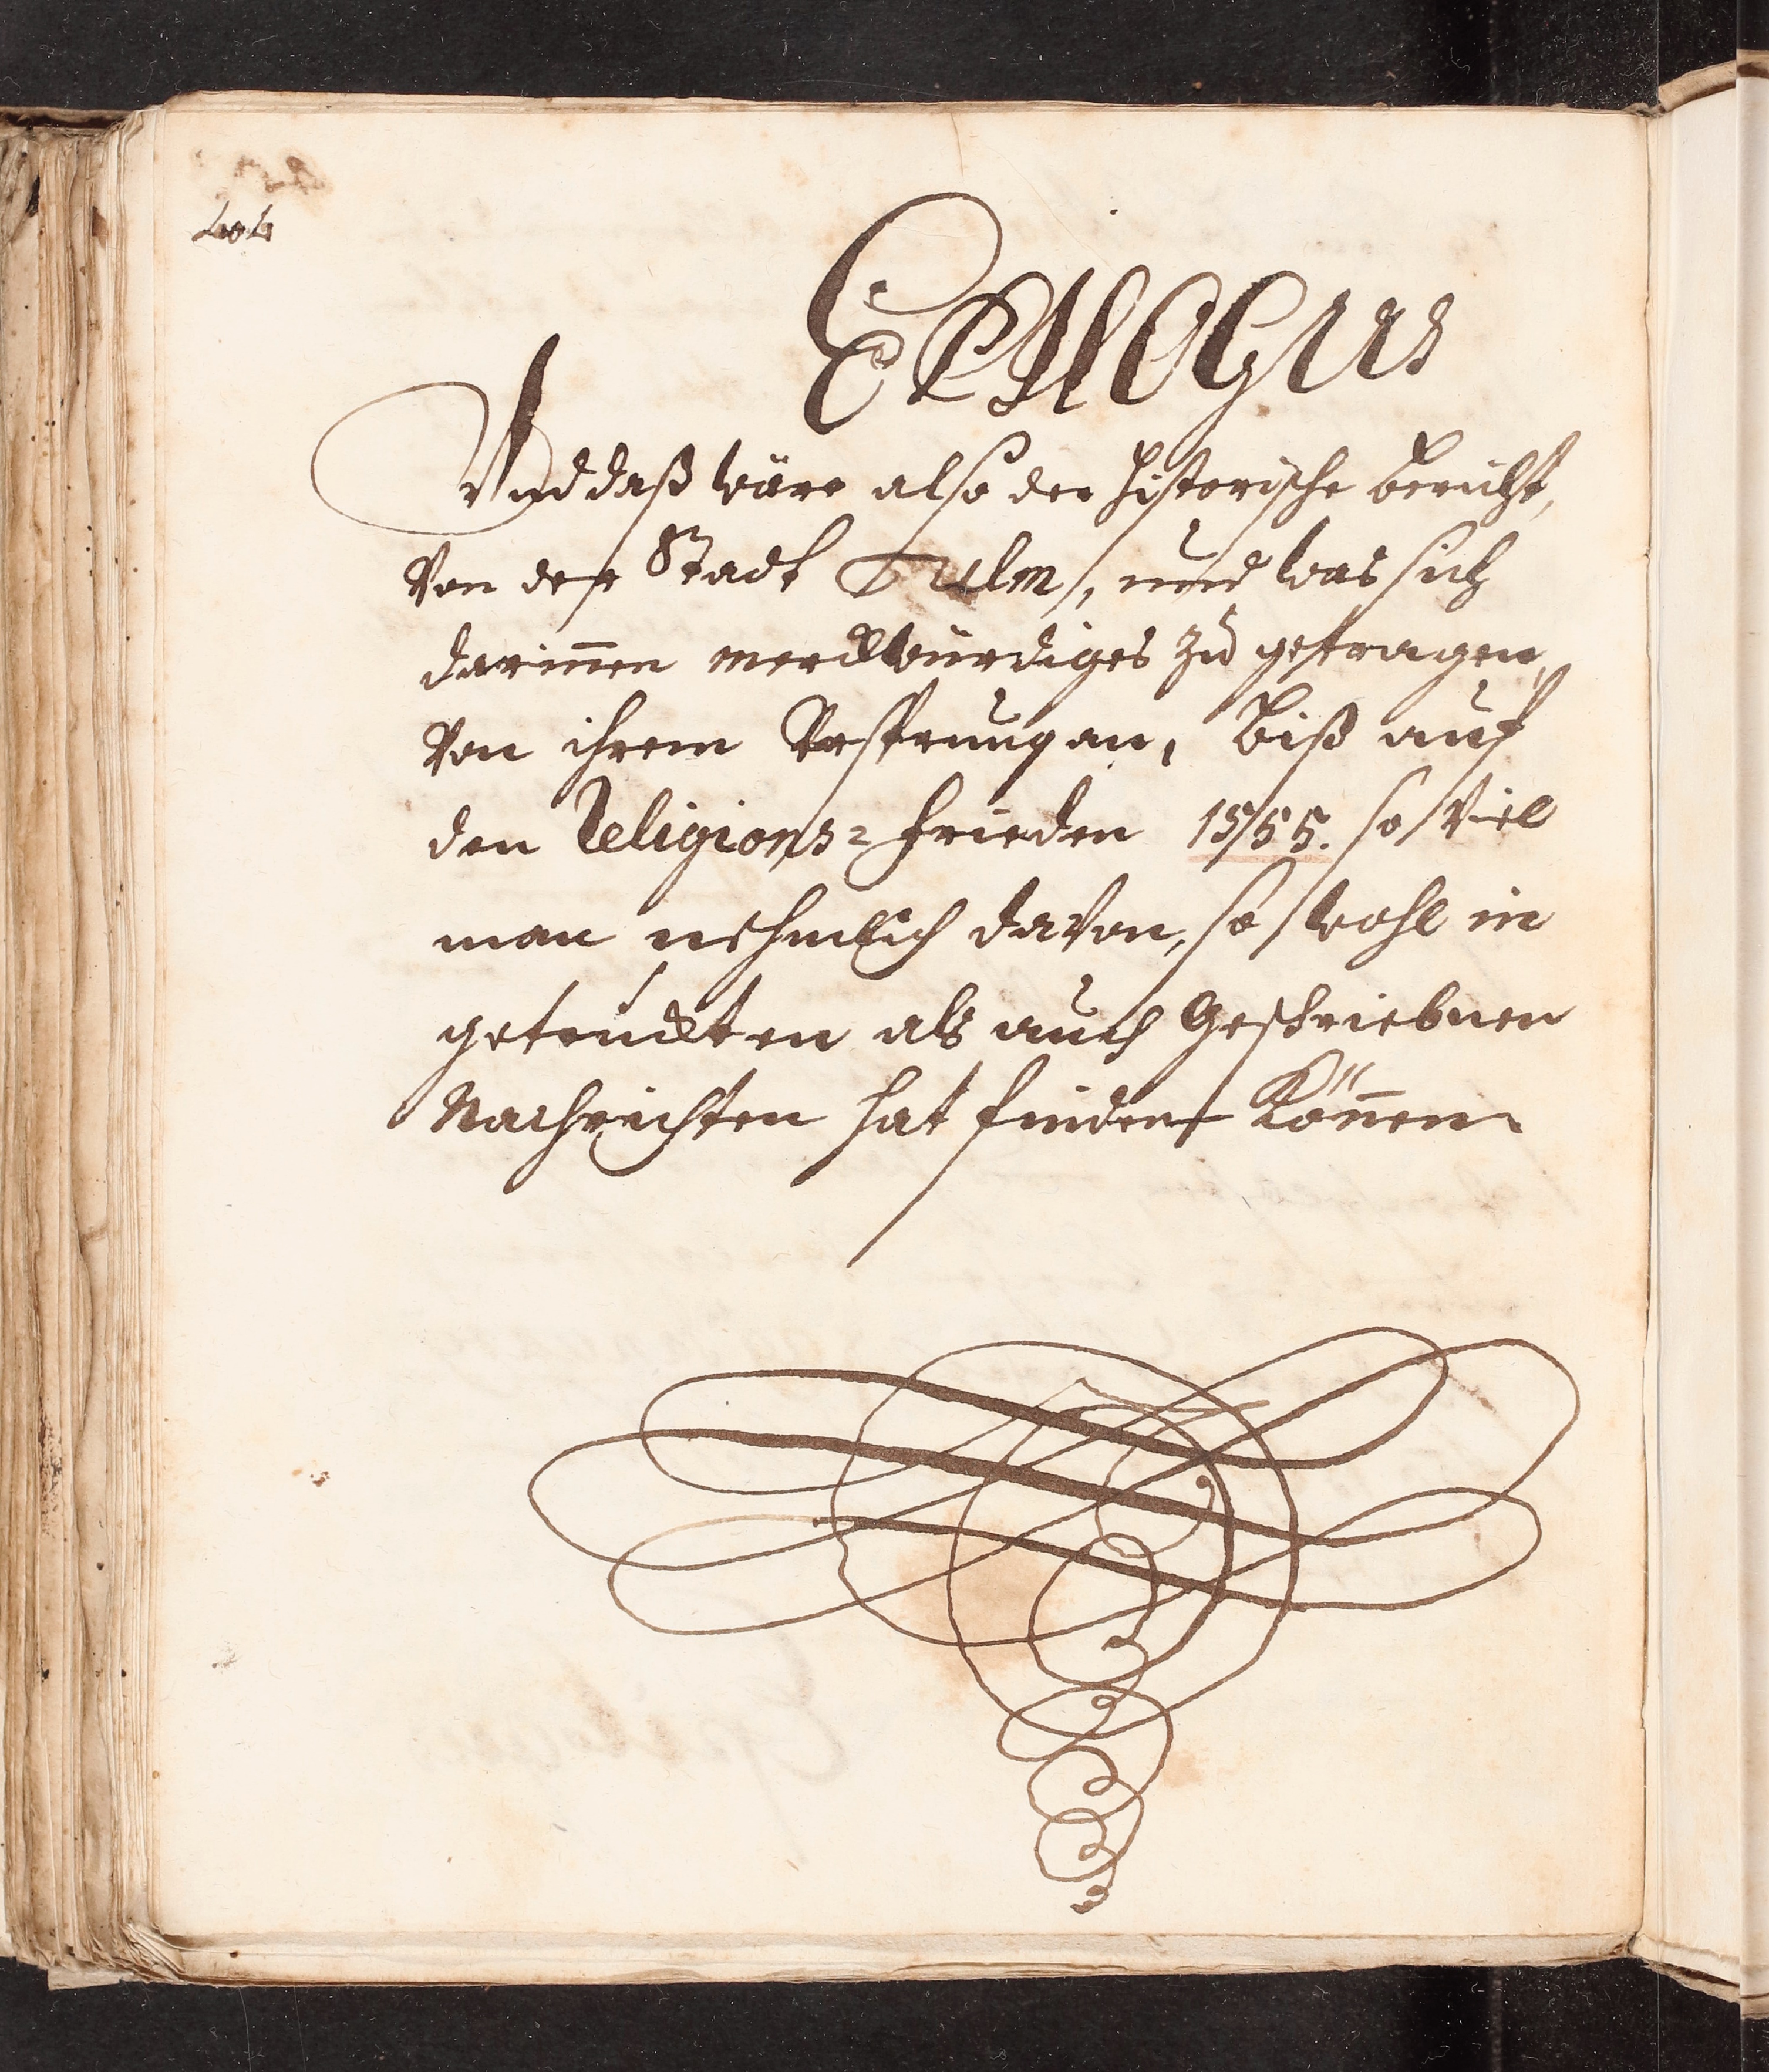 404
EPIlOGus
Vnd daß wäre also der Historische bericht,
Von der Stadt Vlm, und was sich
darinnen merckwürdiges zu getragen,
Von ihrem Vrsprung an, biß auf
den Religions-frieden 1555. so Viel
man nehmlich daVon, so wohl in
getruckten als auch Geschriebnen
Nachrichten hat finden Können